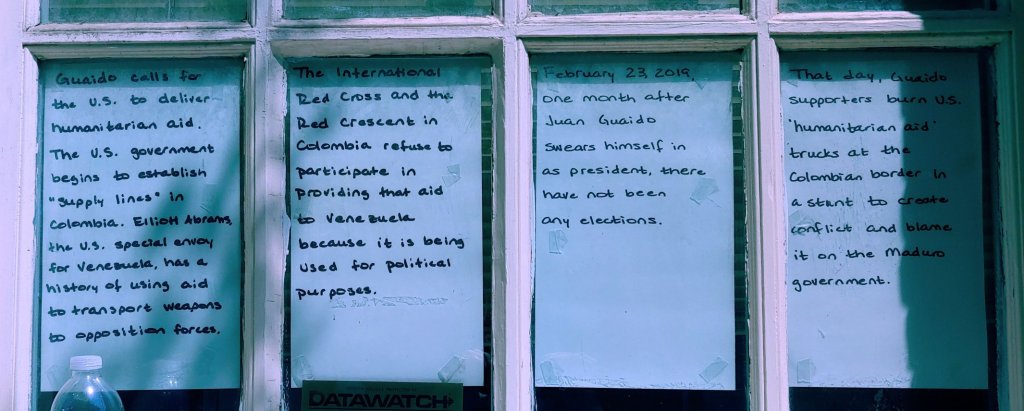 Guaido calls for
the U.S. to deliver
humanitarian aid.
The U.S. government
begins to establish
"supply lines" in
Colombia. Elliott Abrams,
the U.S. special envoy
for Venezuela, has a
history of using aid
to transport weapons
to opposition forces.
The International
Red Cross and the
Red Crescent in
Colombia refuse to
participate in
providing that aid
to Venezuela
because it is being
used for political
purposes.
February 23, 2019,
one month after
Juan Guaido
swears himself in
as president, there
have not been
any elections.
That day, Guaido
supporters burn U.S.
'humanitarian aid'
trucks at the
Colombian border in
a stunt to create
conflict and blame
it on the Maduro
government.
DATAWATCH